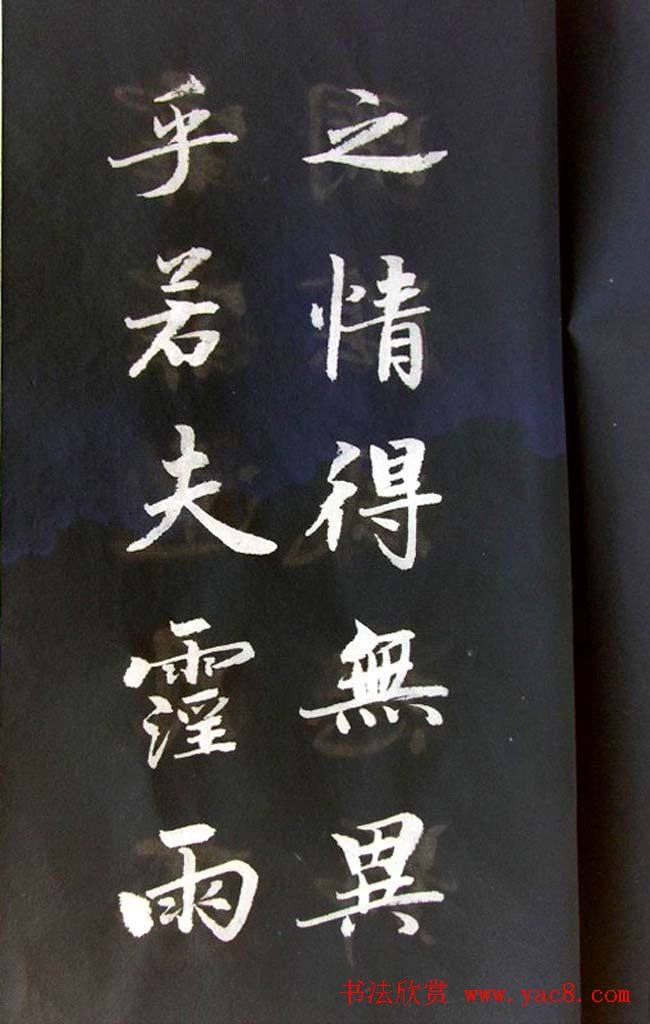 之情得無異
乎若夫霪雨
书法欣赏 www.yac8.com